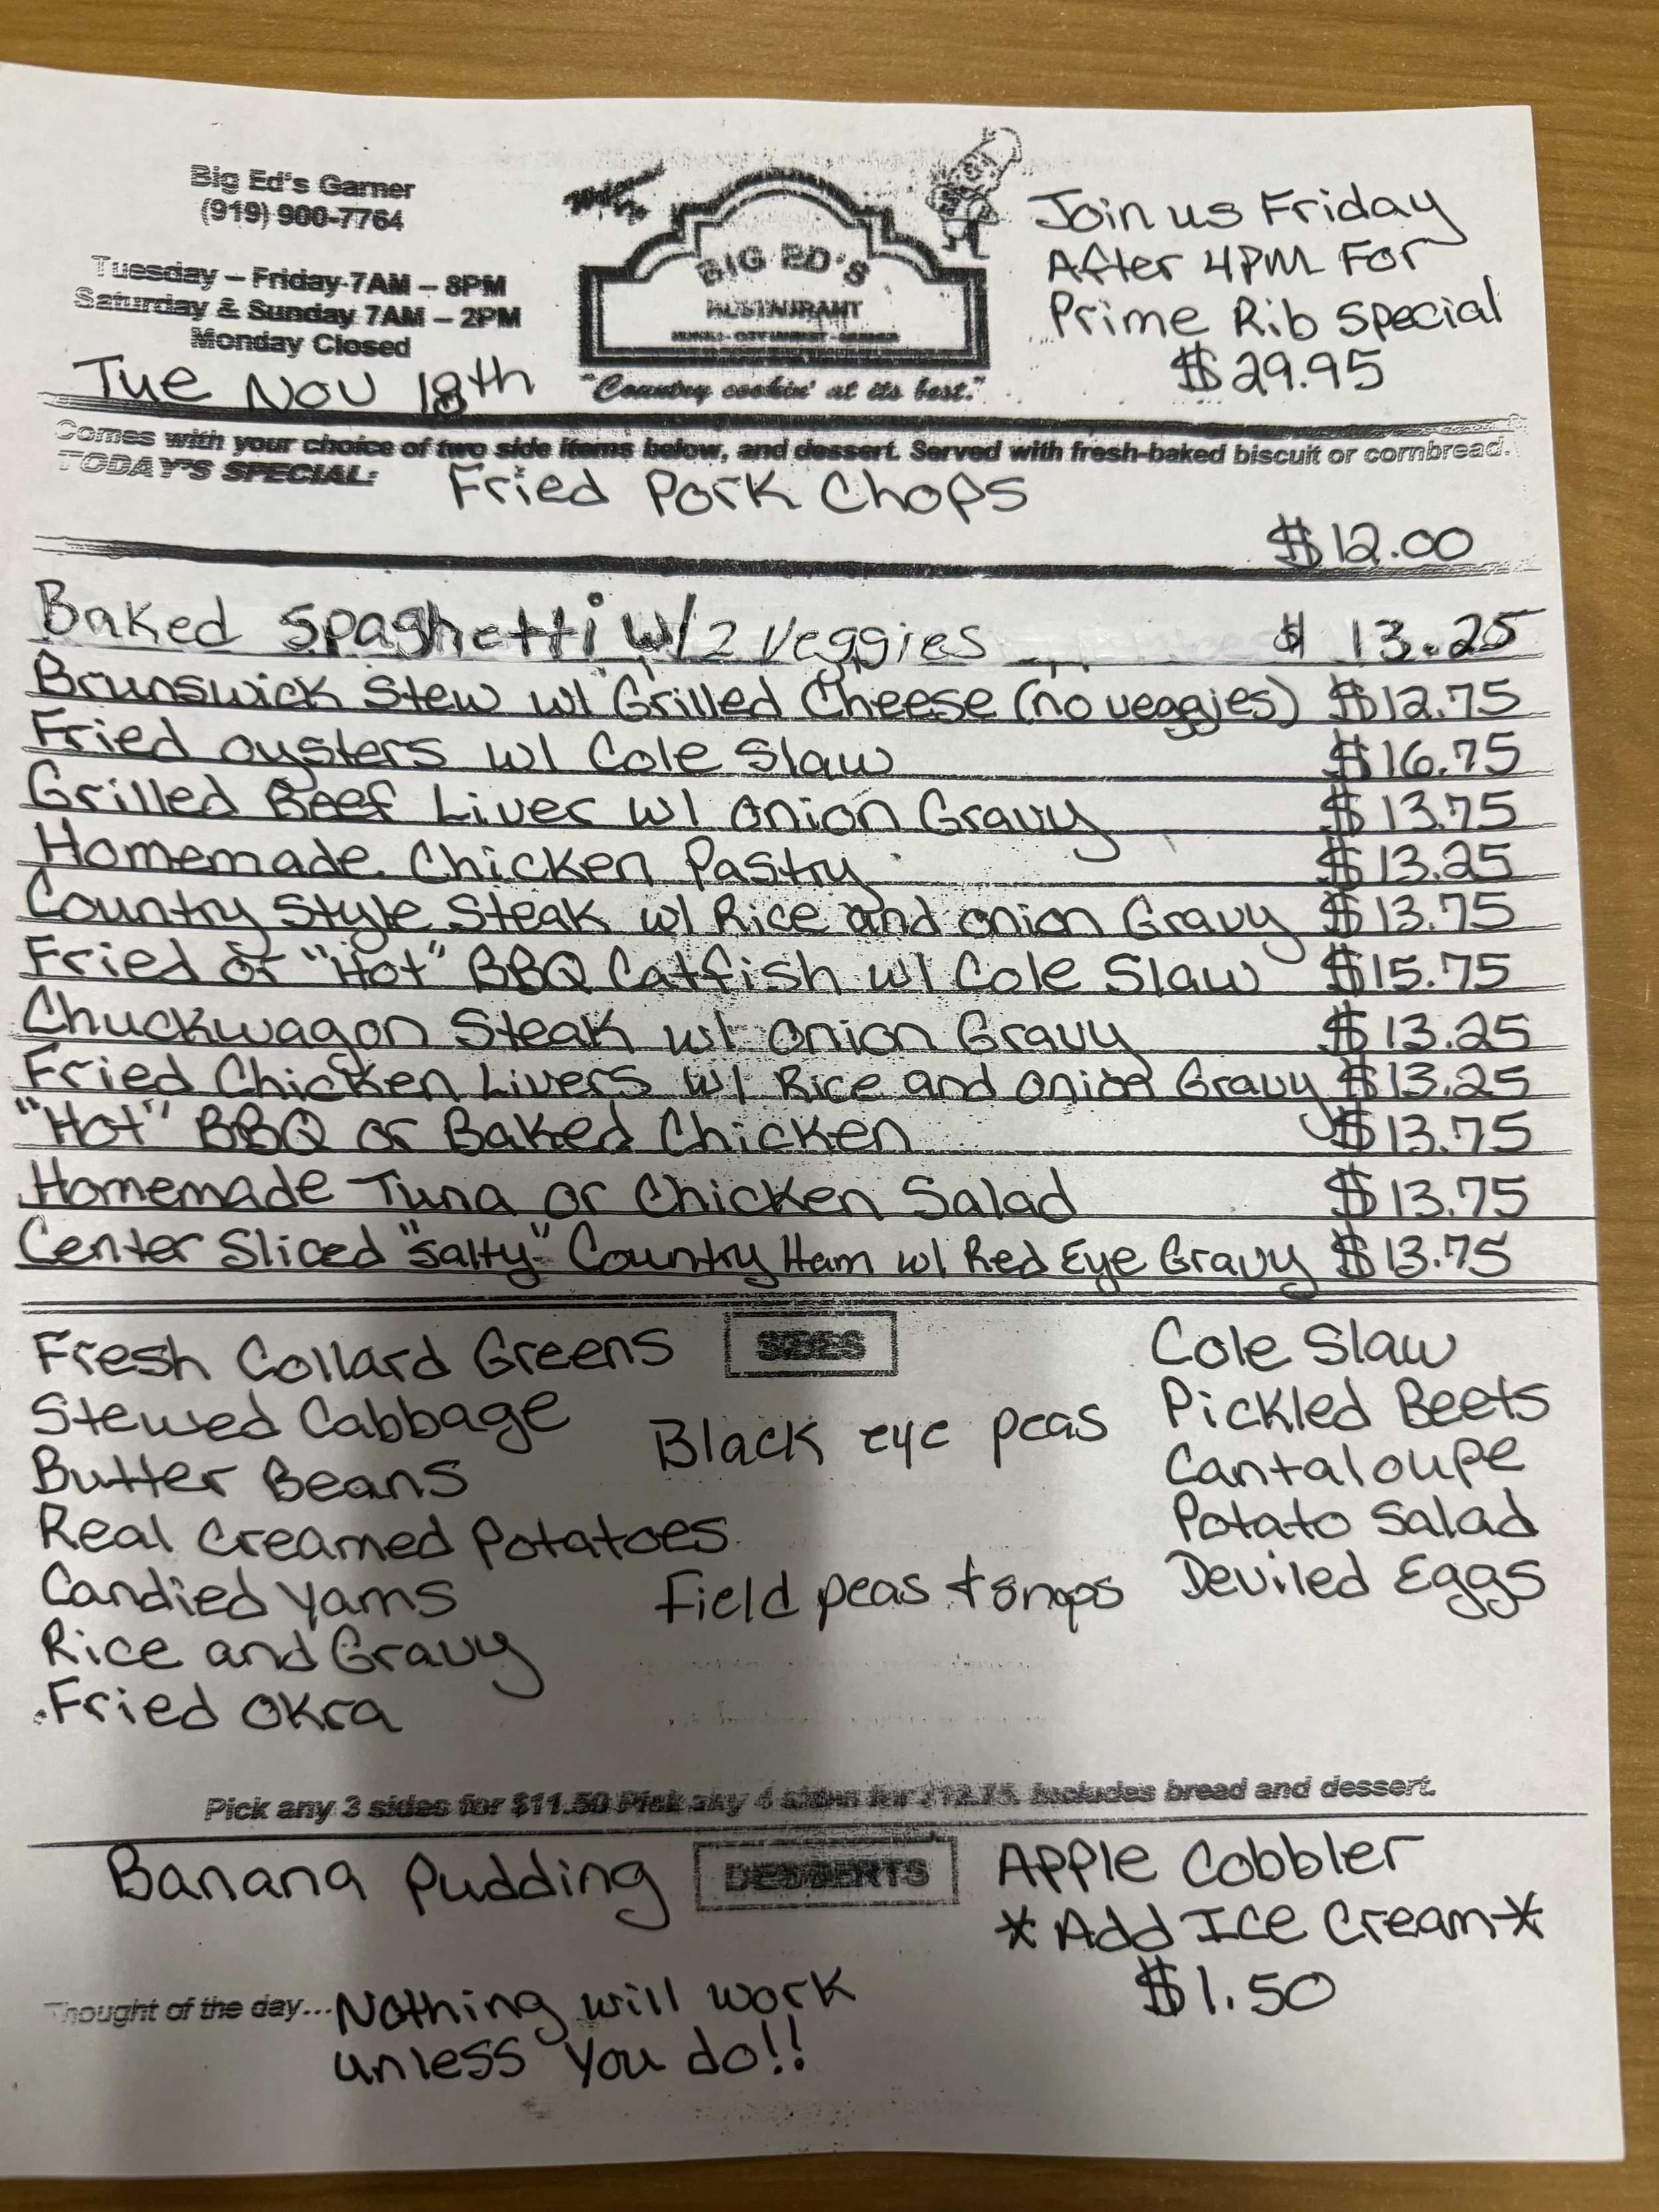 Big Ed's Garner
(919) 900-7764
Tuesday – Friday 7AM – 8PM
Saturday & Sunday 7AM – 2PM
Monday Closed
Tue Nov 18th
BIG ED'S
RESTAURANT
"Country cookin' at its best."
Join us Friday
After 4PM For
Prime Rib Special
$29.95
Comes with your choice of two side items below, and dessert. Served with fresh-baked biscuit or cornbread.
TODAY'S SPECIAL: Fried Pork Chops
$12.00
Baked Spaghetti w/2 Veggies $ 13.25
Brunswick Stew w/ Grilled Cheese (no veggies) $12.75
Fried oysters w/ Cole Slaw $16.75
Grilled Beef Liver w/ onion Gravy $13.75
Homemade Chicken Pastry $13.25
Country Style Steak w/ Rice and onion Gravy $13.75
Fried or "Hot" BBQ Catfish w/ Cole Slaw $15.75
Chuckwagon Steak w/ onion Gravy $13.25
Fried Chicken Livers w/ Rice and onion Gravy $13.25
"Hot" BBQ or Baked Chicken $13.75
Homemade Tuna or Chicken Salad $13.75
Center Sliced "salty" Country Ham w/ Red Eye Gravy $13.75
SIDES
Fresh Collard Greens
Stewed Cabbage
Butter Beans
Real Creamed Potatoes
Candied Yams
Rice and Gravy
Fried Okra
Black eye peas
Field peas & snaps
Cole Slaw
Pickled Beets
Cantaloupe
Potato Salad
Deviled Eggs
Pick any 3 sides for $11.50 Pick any 4 sides for $12.75. Includes bread and dessert.
DESSERTS
Banana Pudding
Apple Cobbler
*Add Ice Cream*
$1.50
Thought of the day... Nothing will work
unless you do!!